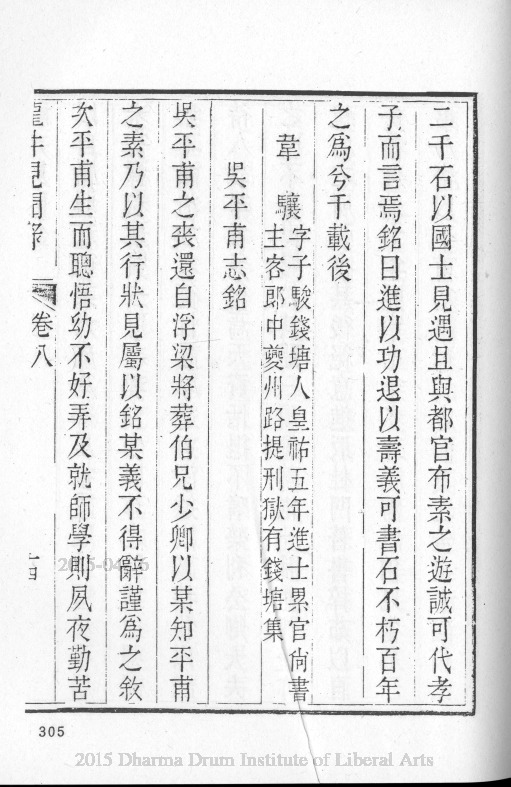 二千石以國士見遇且與都官布素之遊誠可代孝
子而言焉銘曰進以功退以壽義可書石不朽百年
之爲兮千載後
韋驤 字子駿錢塘人皇祐五年進士累官尙書
主客郎中夔州路提刑獄有錢塘集
吳平甫志銘
吳平甫之喪還自浮梁將葬伯兄少卿以某知平甫
之素乃以其行狀見屬以銘某義不得辭謹爲之敘
次平甫生而聰悟幼不好弄及就師學則夙夜勤苦
龍井見聞錄 卷八 十四
305
2015 Dharma Drum Institute of Liberal Arts